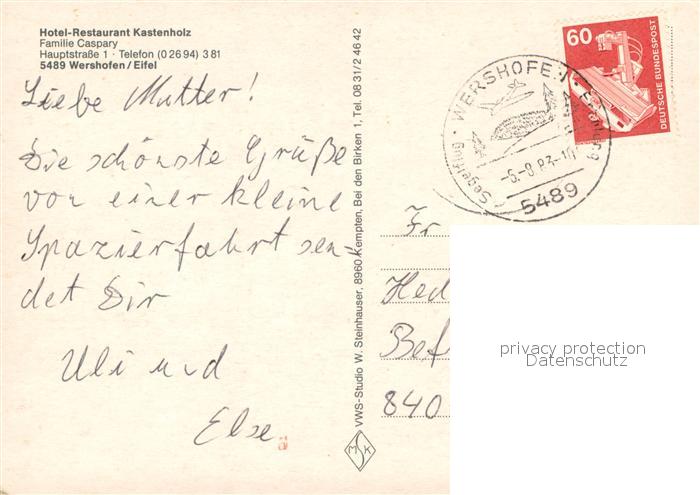 Hotel-Restaurant Kastenholz
Familie Caspary
Hauptstraße 1 · Telefon (0 26 94) 3 81
5489 Wershofen / Eifel
Liebe Mutter!
Die schönste Grüße
von einer kleine
Spazierfahrt sen-
det Dir
Uli und
Else
VWS-Studio W. Steinhauser, 8960 Kempten, Bei den Birken 1, Tel. 08 31/2 46 42
MSK
60
DEUTSCHE BUNDESPOST
WERSHOFEN
Segelflug
-6.-8.83-10
5489
Fr
Hed
Bef
840
privacy protection
Datenschutz